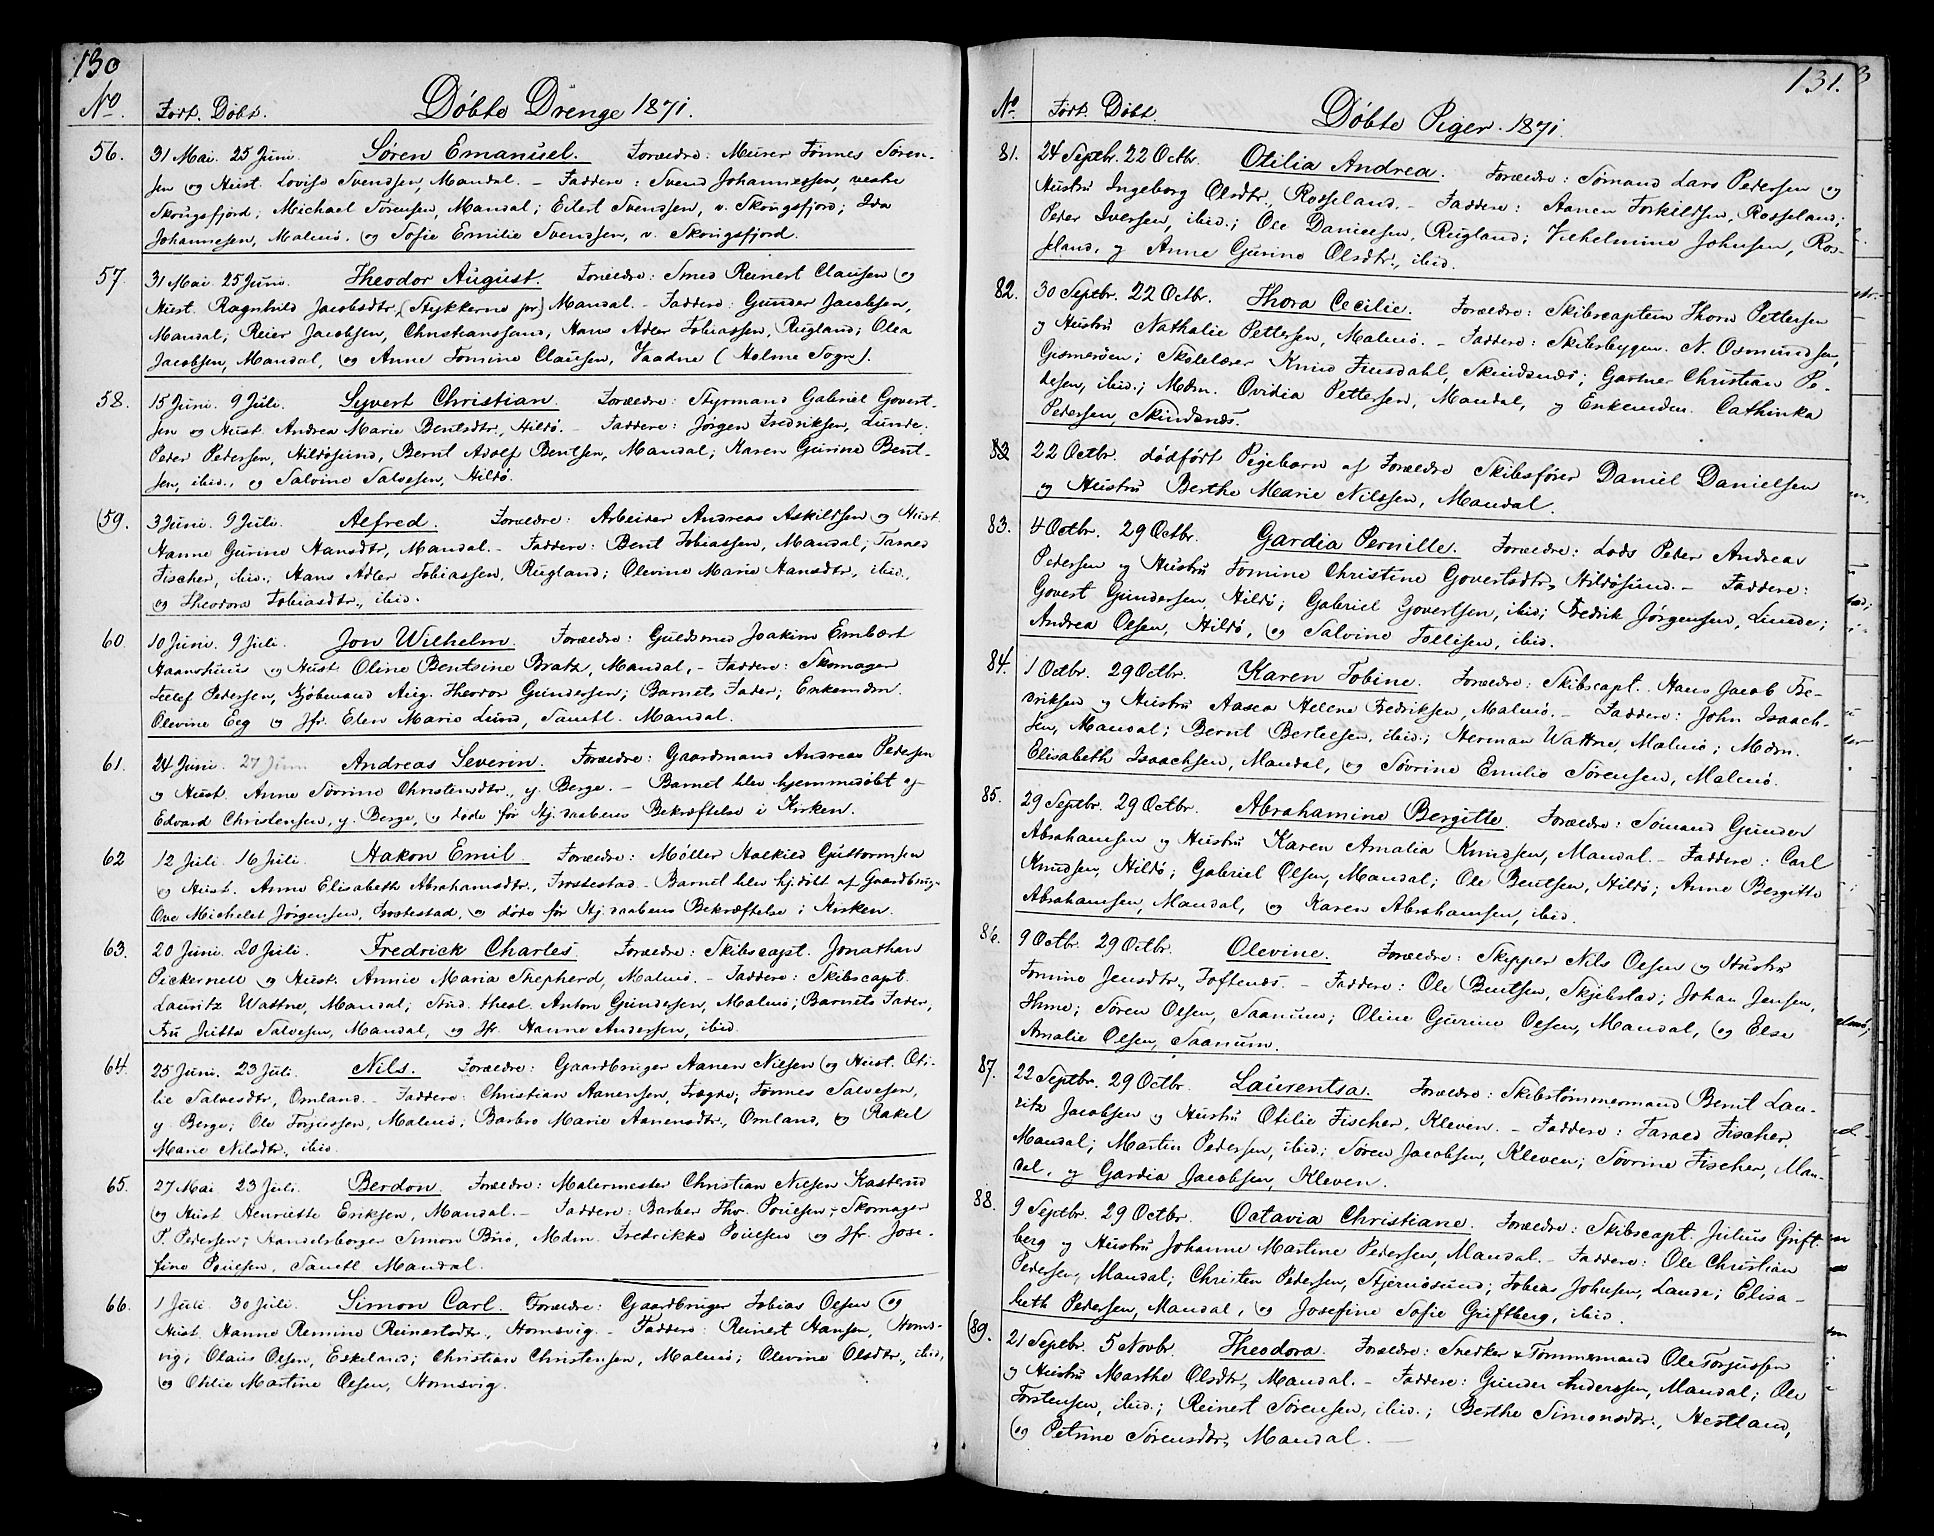 130
No. Født. Døbt. Døbte Drenge 1871.
56. 31 Mai. 25 Juni. Søren Emanuel. Forældre: Murer Tønnes Søren-
sen og Hust. Lovise Svendsen, Mandal. – Faddere: Svend Johannessen, vestre
Skougsfjord; Michael Sørensen, Mandal; Eilert Svendsen, v. Skougsfjord; Ida
Johannesen, Malmö, og Sofie Emilie Svendsen, v. Skougsfjord.
57. 31 Mai. 25 Juni. Theodor August. Forældre: Smed Reinert Clausen og
Hust. Ragnhild Jacobsdtr, (Stykkerne pr) Mandal. – Faddere: Gunder Jacobsen,
Mandal; Reier Jacobsen, Christianssand, Hans Adler Tobiassen, Rugland; Olea
Jacobsen, Mandal, og Anne Tomine Clausen, Vaadne (Holme Sogn).
58. 15 Juni. 9 Juli. Syvert Christian. Forældre: Styrmand Gabriel Govert-
sen og Hust. Andrea Marie Bentsdtr, Hildö. – Faddere: Jörgen Fredriksen, Lunde.
Peder Pedersen, Hildösund, Bernt Adolf Bentsen, Mandal; Karen Gurine Bent-
sen, ibid., og Salvine Salvesen, Hildö.
59. 3 Juni. 9 Juli. Alfred. Forældre: Arbeider Andreas Askildsen og Hust.
Hanne Gurine Hansdtr, Mandal. – Faddere: Bent Tobiassen, Mandal; Taraed
Fischer, ibid.; Hans Adler Tobiassen, Rugland; Olevine Marie Hansdtr, ibid.,
og Theodora Tobiasdtr., ibid.
60. 10 Juni. 9 Juli. Jon Wilhelm. Forældre: Guldsmed Joakim Embært
Haanshuus og Hust. Oline Bentsine Bratz, Mandal, – Faddere: Skomager
Tellef Pedersen, Kjöbmand Aug. Theodor Gundersen; Barnets Fader; Enkemdm.
Olevine Eeg og Jfr. Elen Marie Lund, Samtl. Mandal.
61. 24 Juni. 27 Juni Andreas Severin. Forældre: Gaardmand Andreas Pedersen
og Hust. Anne Sövrine Christensdtr., y. Berge. – Barnet blev hjemmedöbt af
Edvard Christensen, y. Berge, og döde för Hj.daabens Bekræftelse i Kirken.
62 12 Juli. 16 Juli. Hakon Emil Forældre: Möller Halkild Guttormsen
og Hust. Anne Elisabeth Abrahamsdtr., Frostestad – Barnet blev hj.döbt af Gaardbrug.
Ove Michelet Jörgensen, Frostestad, og döde för Hj.daabens Bekræftelse i Kirken.
63. 20 Juni. 20 Juli. Fredrick Charles Forældre: Skibscapt. Jonathan
Pickernell og Hust. Annie Maria Shepherd, Malmö. – Faddere: Skibscapt.
Lauritz Wattne, Mandal; Stud. theol. Anton Gundersen, Malmö; Barnets Fader,
Fru Jutta Salvesen, Mandal, og Jfr. Hanne Andersen, ibid.
64. 25 Juni. 23 Juli. Nils. Forældre: Gaardbruger Aanen Nilsen og Hust. Oti-
lie Salvesdtr, Omland. – Faddere: Christian Aanensen, Frægne; Tönnes Salvesen,
y. Berge; Ole Torjussen, Malmö; Barbro Marie Aanensdtr, Omland, og Rakel
Marie Nilsdtr., ibid.
65. 27 Mai 23 Juli. Berdon. Forældre: Malermester Christian Nilsen Kasterud
og Hust Henriette Eriksen, Mandal. – Faddere: Barber Thv. Poulsen; Skomager
P. Pedersen; Handelsborger Simon Brö, Mdm. Fredrikke Poulsen og Jfr. Jose-
fine Poulsen, Samtl. Mandal.
66. 1 Juli. 30 Juli. Simon Carl. Forældre: Gaardbruger Tobias Olsen og
Hust. Hanne Remine Reinertsdtr., Homsvig. – Faddere: Reinert Hansen, Homs-
vig; Olaus Olsen, Eskeland; Christian Christensen, Malmö; Olevine Olsdtr., ibid,
og Othlie Martine Olsen, Homsvig.
131.
No. Født. Døbt. Døbte Piger. 1871
81. 24 Septbr. 22 Octbr. Otilia Andrea. Forældre: Sömand Lars Pedersen og
Hustru Ingeborg Olsdtr, Rosseland. – Faddere: Aanen Torkildsen, Rosseland;
Peder Iversen, ibid.; Ole Danielsen, Rugland; Vilhelmine Johnsen, Ros-
seland, og Anne Gurine Olsdtr., ibid.
82. 30 Septbr. 22 Octbr. Thora Cecilie. Forældre: Skibscaptein Thom Pettersen
og Hustru Nathalie Pettersen, Malmö. – Faddere: Skibsbyggm. N. Osmundsen,
Gismeröen; Skolelærer Knud Finsdahl, Skindsnæs; Gartner Christian Pe-
dersen, ibid.; Mdm. Ovidia Pettersen, Mandal, og Enkemdm. Cathinka
Pedersen, Skindsnæs.
83 22 Octbr. dödfört Pigebarn af Forældre Skibsförer Daniel Danielsen
og Hustru Berthe Marie Nilssen, Mandal.
83. 4 Octbr. 29 Octbr. Gardia Pernille. Forældre: Lods Peder Andreas
Pedersen og Hustru Tomine Christine Govertsdtr, Hildösund. – Faddere:
Govert Gundersen, Hildö; Gabriel Govertsen, ibid; Fredrik Jörgensen, Lunde;
Andrea Olsen, Hildö, og Salvine Tollisen, ibid.
84. 1 Octbr. 29 Octbr. Karen Tobine. Forældre: Skibscapt. Hans Jacob Fre-
driksen og Hustru Aasea Helene Fredriksen, Malmö. – Faddere: John Isaach-
sen, Mandal; Bernt Bertelsen, ibid.; Herman Wattne, Malmö; Mdm.
Elisabeth Isaachsen, Mandal, og Sövrine Emilie Sörensen, Malmö.
85. 29 Septbr. 29 Octbr. Abrahamine Bergitte. Forældre: Sömand Gunder
Abrahamsen og Hustru Karen Amalia Knudsen, Mandal. – Faddere: Carl
Knudsen, Hildö; Gabriel Olsen, Mandal; Ole Bentsen, Hildö; Anne Bergitte
Abrahamsen, Mandal, og Karen Abrahamsen, ibid.
86. 9 Octbr. 29 Octbr. Olevine. Forældre: Skipper Nils Olsen og Hustru
Tomine Jensdtr., Toftenæs. – Faddere: Ole Bentsen, Skjebstad; Johan Jensen,
Ihme; Sören Olsen, Saanum; Oline Gurine Olsen, Mandal, og Else
Amalie Olsen, Saanum.
87. 22 Septbr. 29 Octbr. Laurentsa. Forældre: Skibstömmermand Bernt Lau-
ritz Jacobsen og Hustru Otilie Fischer, Kleven. – Faddere: Taraed Fischer,
Mandal; Martin Pedersen, ibid.; Sören Jacobsen, Kleven; Sövrine Fischer, Man-
dal, og Gardia Jacobsen, Kleven.
88. 9 Septbr. 29 Octbr. Octavia Christiane. Forældre: Skibscapt. Julius Grift-
berg og Hustru Johanne Martine Pedersen, Mandal. – Faddere: Ole Christian
Pedersen, Mandal; Christen Pedersen, Stjernösund; Tobias Johnsen, Lande; Elisa-
beth Pedersen, Mandal, og Josefine Sofie Griftberg, ibid.
89. 21 Septbr. 5 Novbr. Theodora. Forældre: Snedker & Tömmermand Ole Torjussen
og Hustru Marthe Olsdtr, Mandal. – Faddere: Gunder Anderssen, Mandal; Ole
Torstensen, ibid.; Reinert Sörensen, ibid.; Berthe Simonsdtr., Hestland,
og Petrine Sörensdtr, Mandal. –